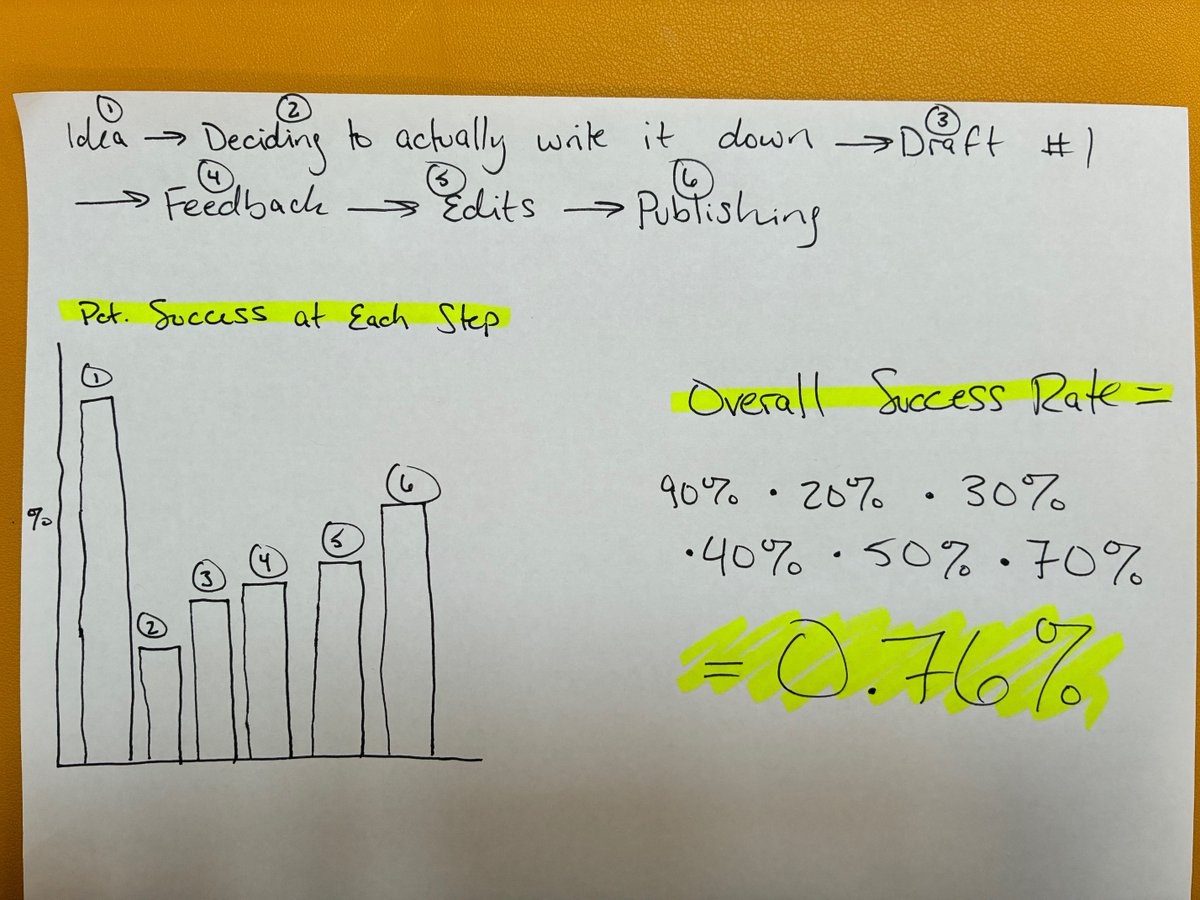 ① ②  ③
Idea → Deciding to actually write it down → Draft #1
④ ⑤ ⑥
→ Feedback → Edits → Publishing
Pct. Success at Each Step
%
① ② ③ ④ ⑤ ⑥
Overall Success Rate =
90% · 20% · 30%
· 40% · 50% · 70%
= 0.76%